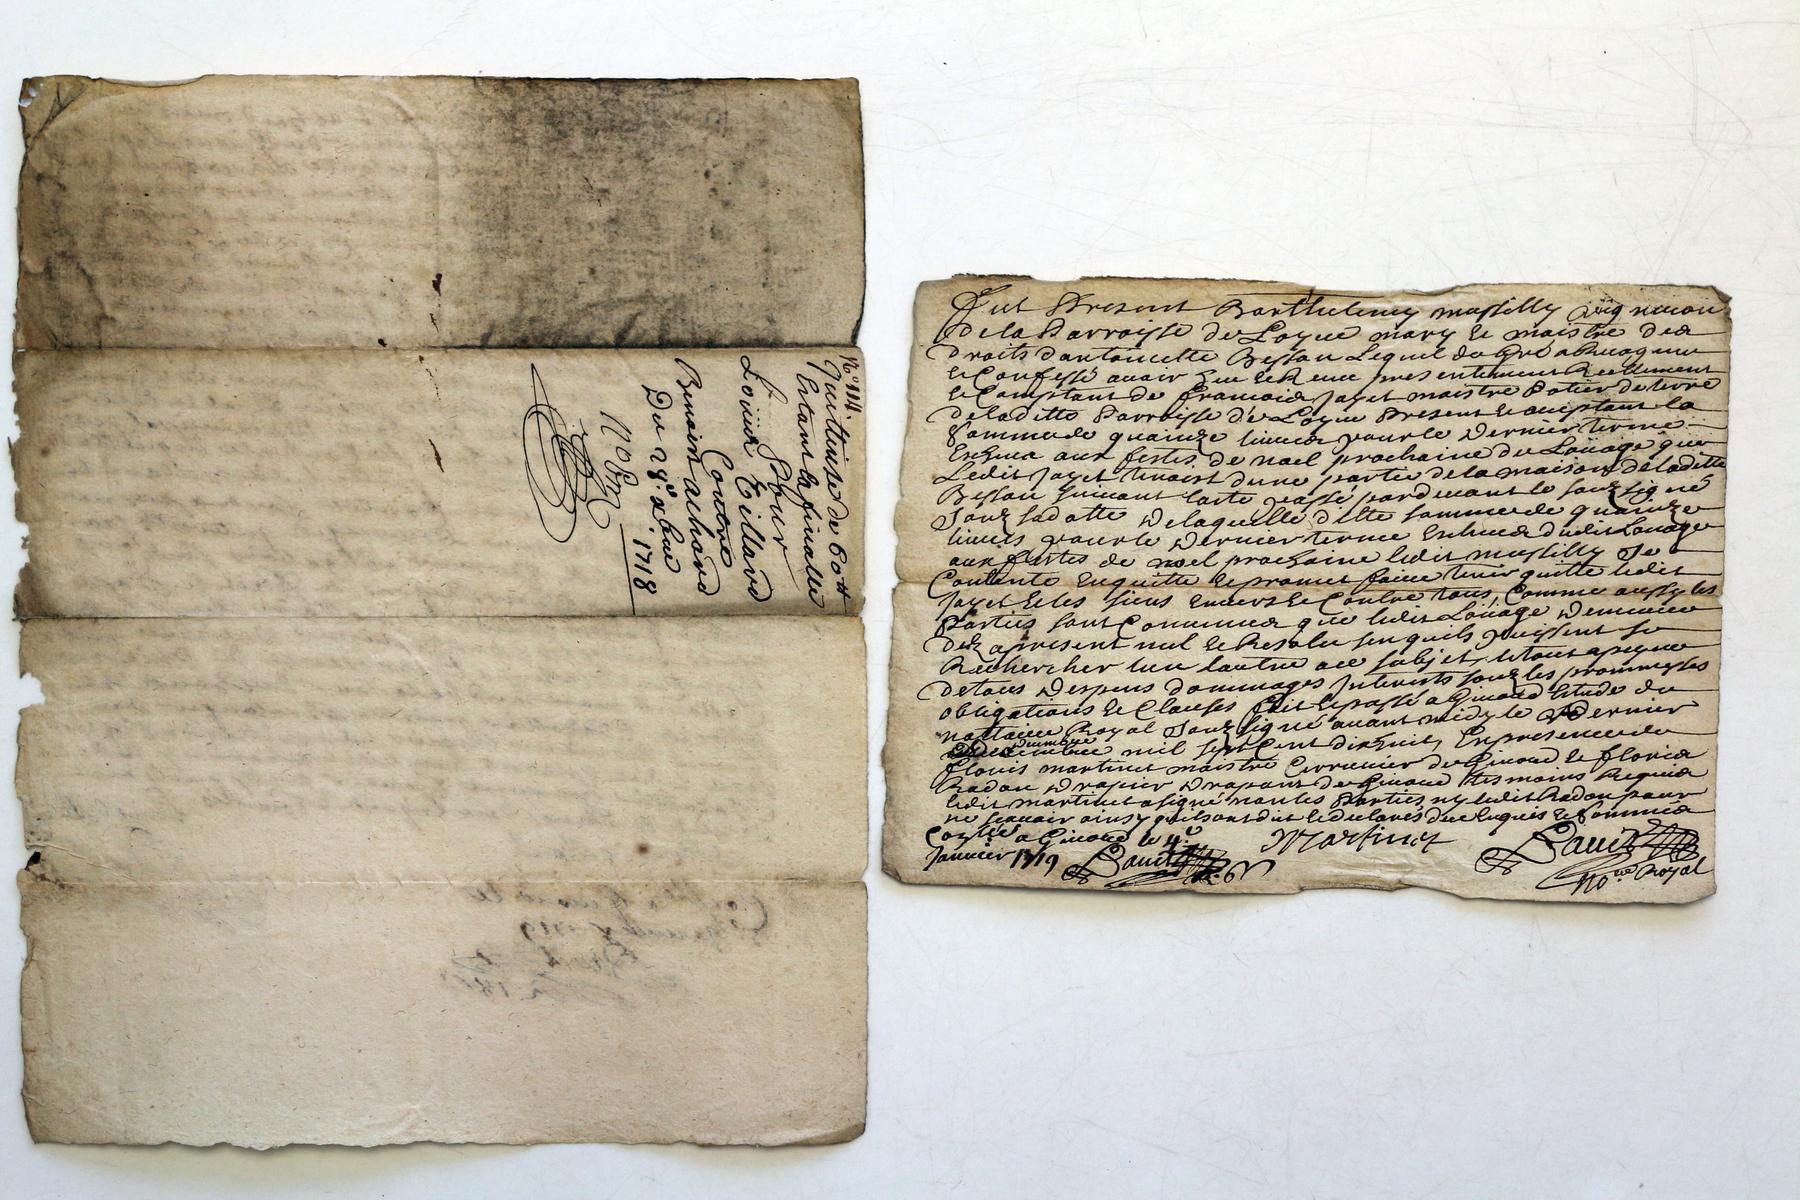 N° 114.
Quittance de 60 ₶
Estant la finalle
Pour
Louise Tillard
Contre
Benoist achard
Du 28e xbre
1718
Fut Present Barthelemy massilly vigneron
de la Parroisse de Loyre mary & maistre des
Droits dantoinette Besson Lequel de gré a Recognu
& Confessé avoir heu & Receu presentement Reellement
& Comptant de francois Jayet maistre Potier de terre
de laditte Parroisse de Loyre Present & aceptant la
Somme de quainze livres pour le dernier terme
Escheu aux festes de noel prochaine du Louage que
Ledit Jayet tenoit dune partie de la maison de laditte
Besson suivant lacte passé pardevant le souzsigné
Souz sa datte de laquelle ditte somme de quainze
livres pour le dernier terme Escheu dudit Louage
aux festes de noel prochaine ledit massilly se
Contente Enquitte & promet faire tenir quitte ledit
Jayet & les siens envers & Contre tous, Comme aussy les
Parties sont Convenues que ledit Louage demeure
dez apresent nul & Resolu sans quils puissent se
Rechercher lun lautre a ce subjet, le tout a peyne
de tous despens dommages Interests souz les promesses
obligations & Clauses fait & passé a Givord Estude du
nottaire Royal Souzsigné avant midy le dernier
decembre mil sept Cent dixhuit, En presence de
flouis martinet maistre Cerrurier de Givord & floris
Radon drapier drapant de Givord tesmoins Requis
ledit martinet a signé non les Parties ny ledit Radon pour
ne scavoir ainsy quils ont dit & declaré de ce Enquis & Sommés
Con[t]lé a Givord le 4e
Janvier 1719
Martinet
No.re Royal